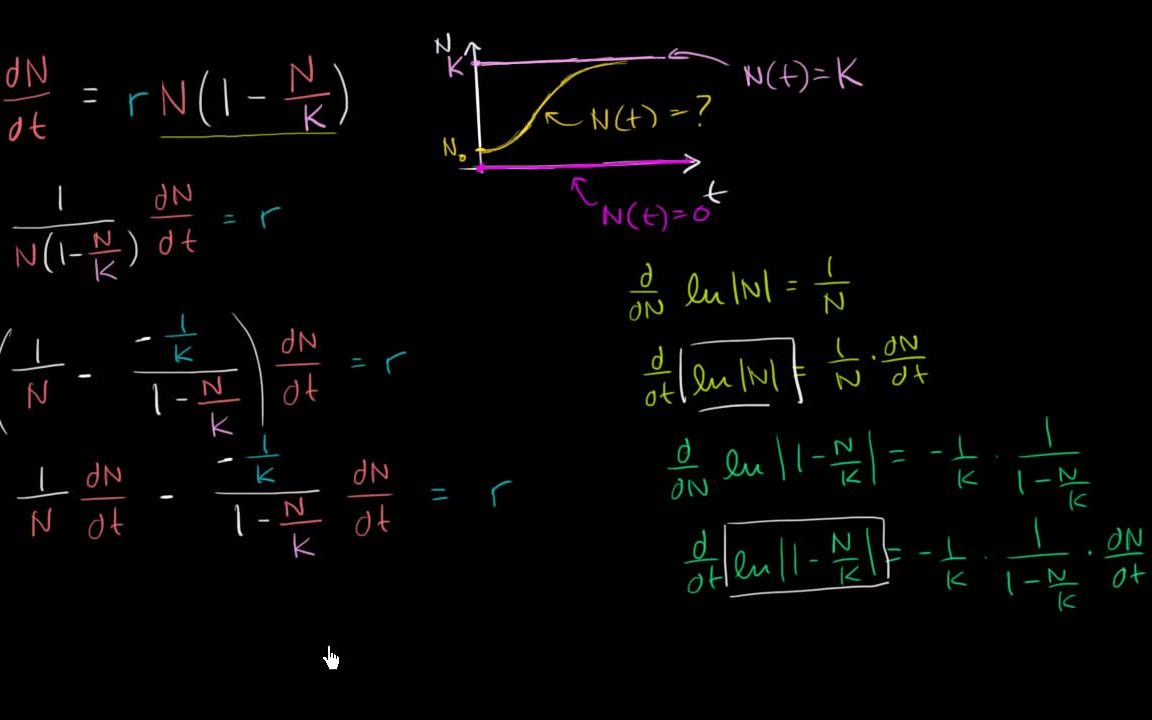 dN/dt = rN(1 - N/K)
1/(N(1 - N/K)) dN/dt = r
(1/N - (-1/K)/(1 - N/K)) dN/dt = r
1/N dN/dt - (-1/K)/(1 - N/K) dN/dt = r
N
K
N(t) = K
N(t) = ?
N₀
t
N(t) = 0
d/dN ln|N| = 1/N
d/dt ln|N| = 1/N · dN/dt
d/dN ln|1 - N/K| = -1/K · 1/(1 - N/K)
d/dt ln|1 - N/K| = -1/K · 1/(1 - N/K) · dN/dt